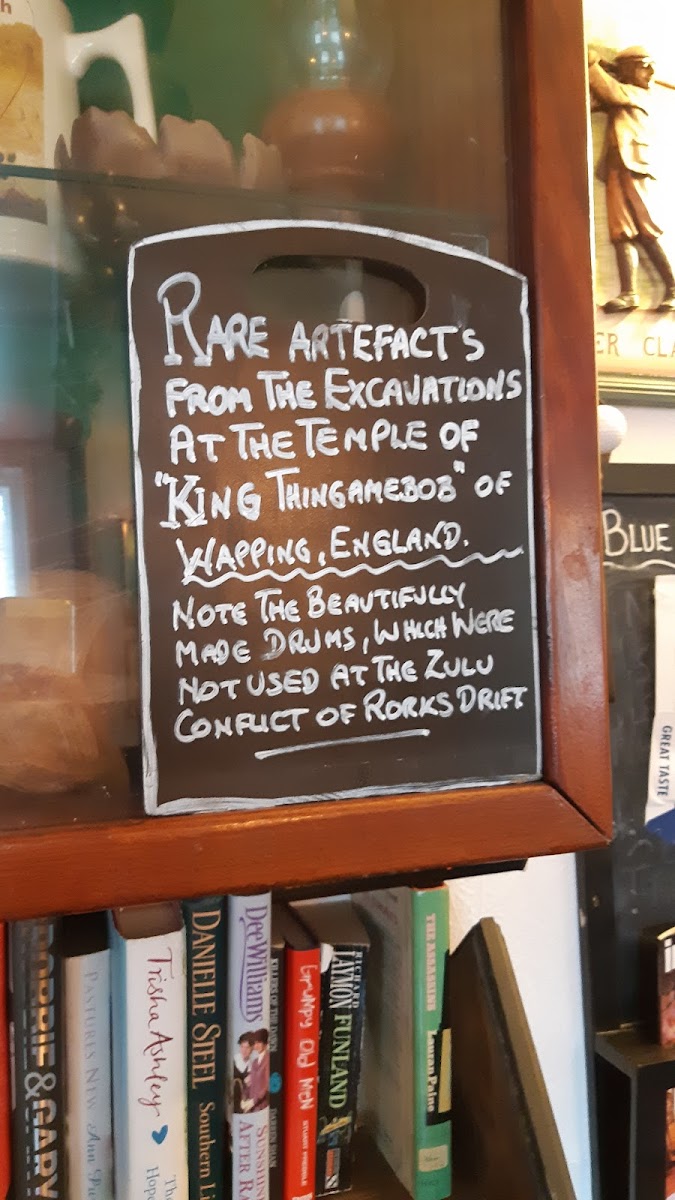 h
RARE ARTEFACTS
FROM THE EXCAVATIONS
AT THE TEMPLE OF
"KING THINGAMEBOB" OF
WAPPING, ENGLAND.
NOTE THE BEAUTIFULLY
MADE DRUMS, WHICH WERE
NOT USED AT THE ZULU
CONFLICT OF RORKS DRIFT
ER CLA
BLUE
GREAT TASTE
& GARY
PASTURES NEW Ann
Trisha Ashley
The
Hope
DANIELLE STEEL Southern Li
Dee Williams
SUNSHINE
AFTER RA
DARREN SHAN
Grumpy Old Men
STUART PREBBLE
RICHARD
LAYMON FUNLAND
THE ASSASSINS
Lauran Paine